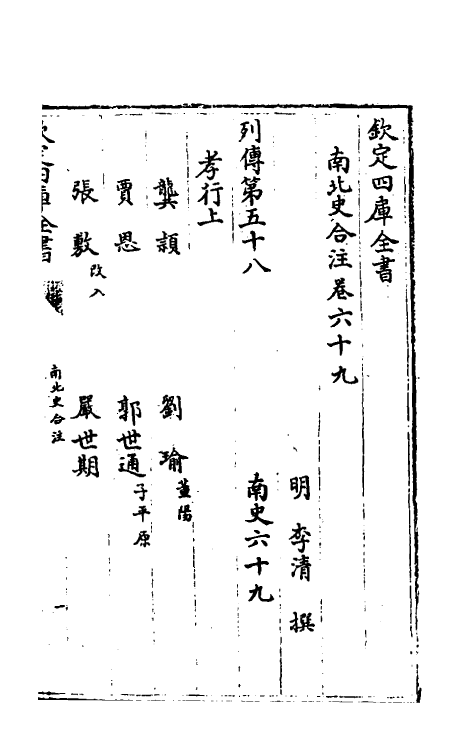 欽定四庫全書
南北史合注卷六十九
明 李清 撰
列傳第五十八 南史六十九
孝行上
龔穎 劉瑜 董陽
賈恩 郭世通 子平原
張敷 改入 嚴世期
欽定四庫全書 南北史合注 一